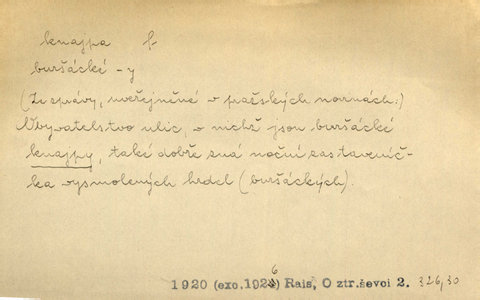 knajpa f.
buršácké -y
(Ze zprávy, uveřejněné v pražských novinách:)
Obyvatelstvo ulic, v nichž jsou buršácké
knajpy, také dobře zná noční zastaveníč-
ka vysmolených hrdel (buršáckých).
1920 (exc. 1926) Rais, O ztr. ševci 2. 326,30